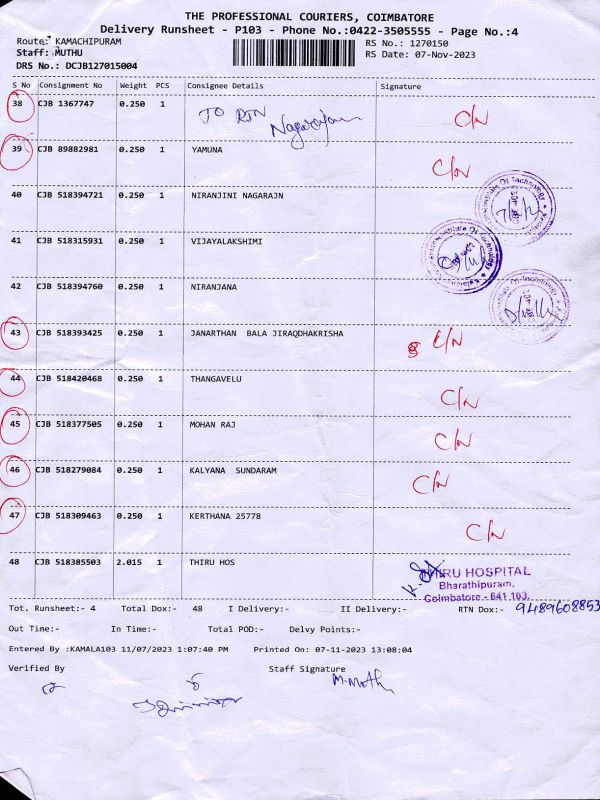 THE PROFESSIONAL COURIERS, COIMBATORE
Delivery Runsheet - P103 - Phone No.:0422-3505555 - Page No.:4
Route: KAMACHIPURAM RS No.: 1270150
Staff: MUTHU RS Date: 07-Nov-2023
DRS No.: DCJB127015004
S No Consignment No Weight PCS Consignee Details Signature
38 CJB 1367747 0.250 1 TO RTN Nagarajan C/N
39 CJB 89882981 0.250 1 YAMUNA C/N
40 CJB 518394721 0.250 1 NIRANJINI NAGARAJN
41 CJB 518315931 0.250 1 VIJAYALAKSHIMI
42 CJB 518394760 0.250 1 NIRANJANA
43 CJB 518393425 0.250 1 JANARTHAN BALA JIRAQDHAKRISHA C/N
44 CJB 518420468 0.250 1 THANGAVELU C/N
45 CJB 518377505 0.250 1 MOHAN RAJ C/N
46 CJB 518279084 0.250 1 KALYANA SUNDARAM C/N
47 CJB 518309463 0.250 1 KERTHANA 25778 C/N
48 CJB 518385503 2.015 1 THIRU HOS THIRU HOSPITAL
Bharathipuram,
Coimbatore - 641 103.
Tot. Runsheet:- 4 Total Dox:- 48 I Delivery:- II Delivery:- RTN Dox:- 9489608853
Out Time:- In Time:- Total POD:- Delvy Points:-
Entered By :KAMALA103 11/07/2023 1:07:40 PM Printed On: 07-11-2023 13:08:04
Verified By Staff Signature
M.Muth